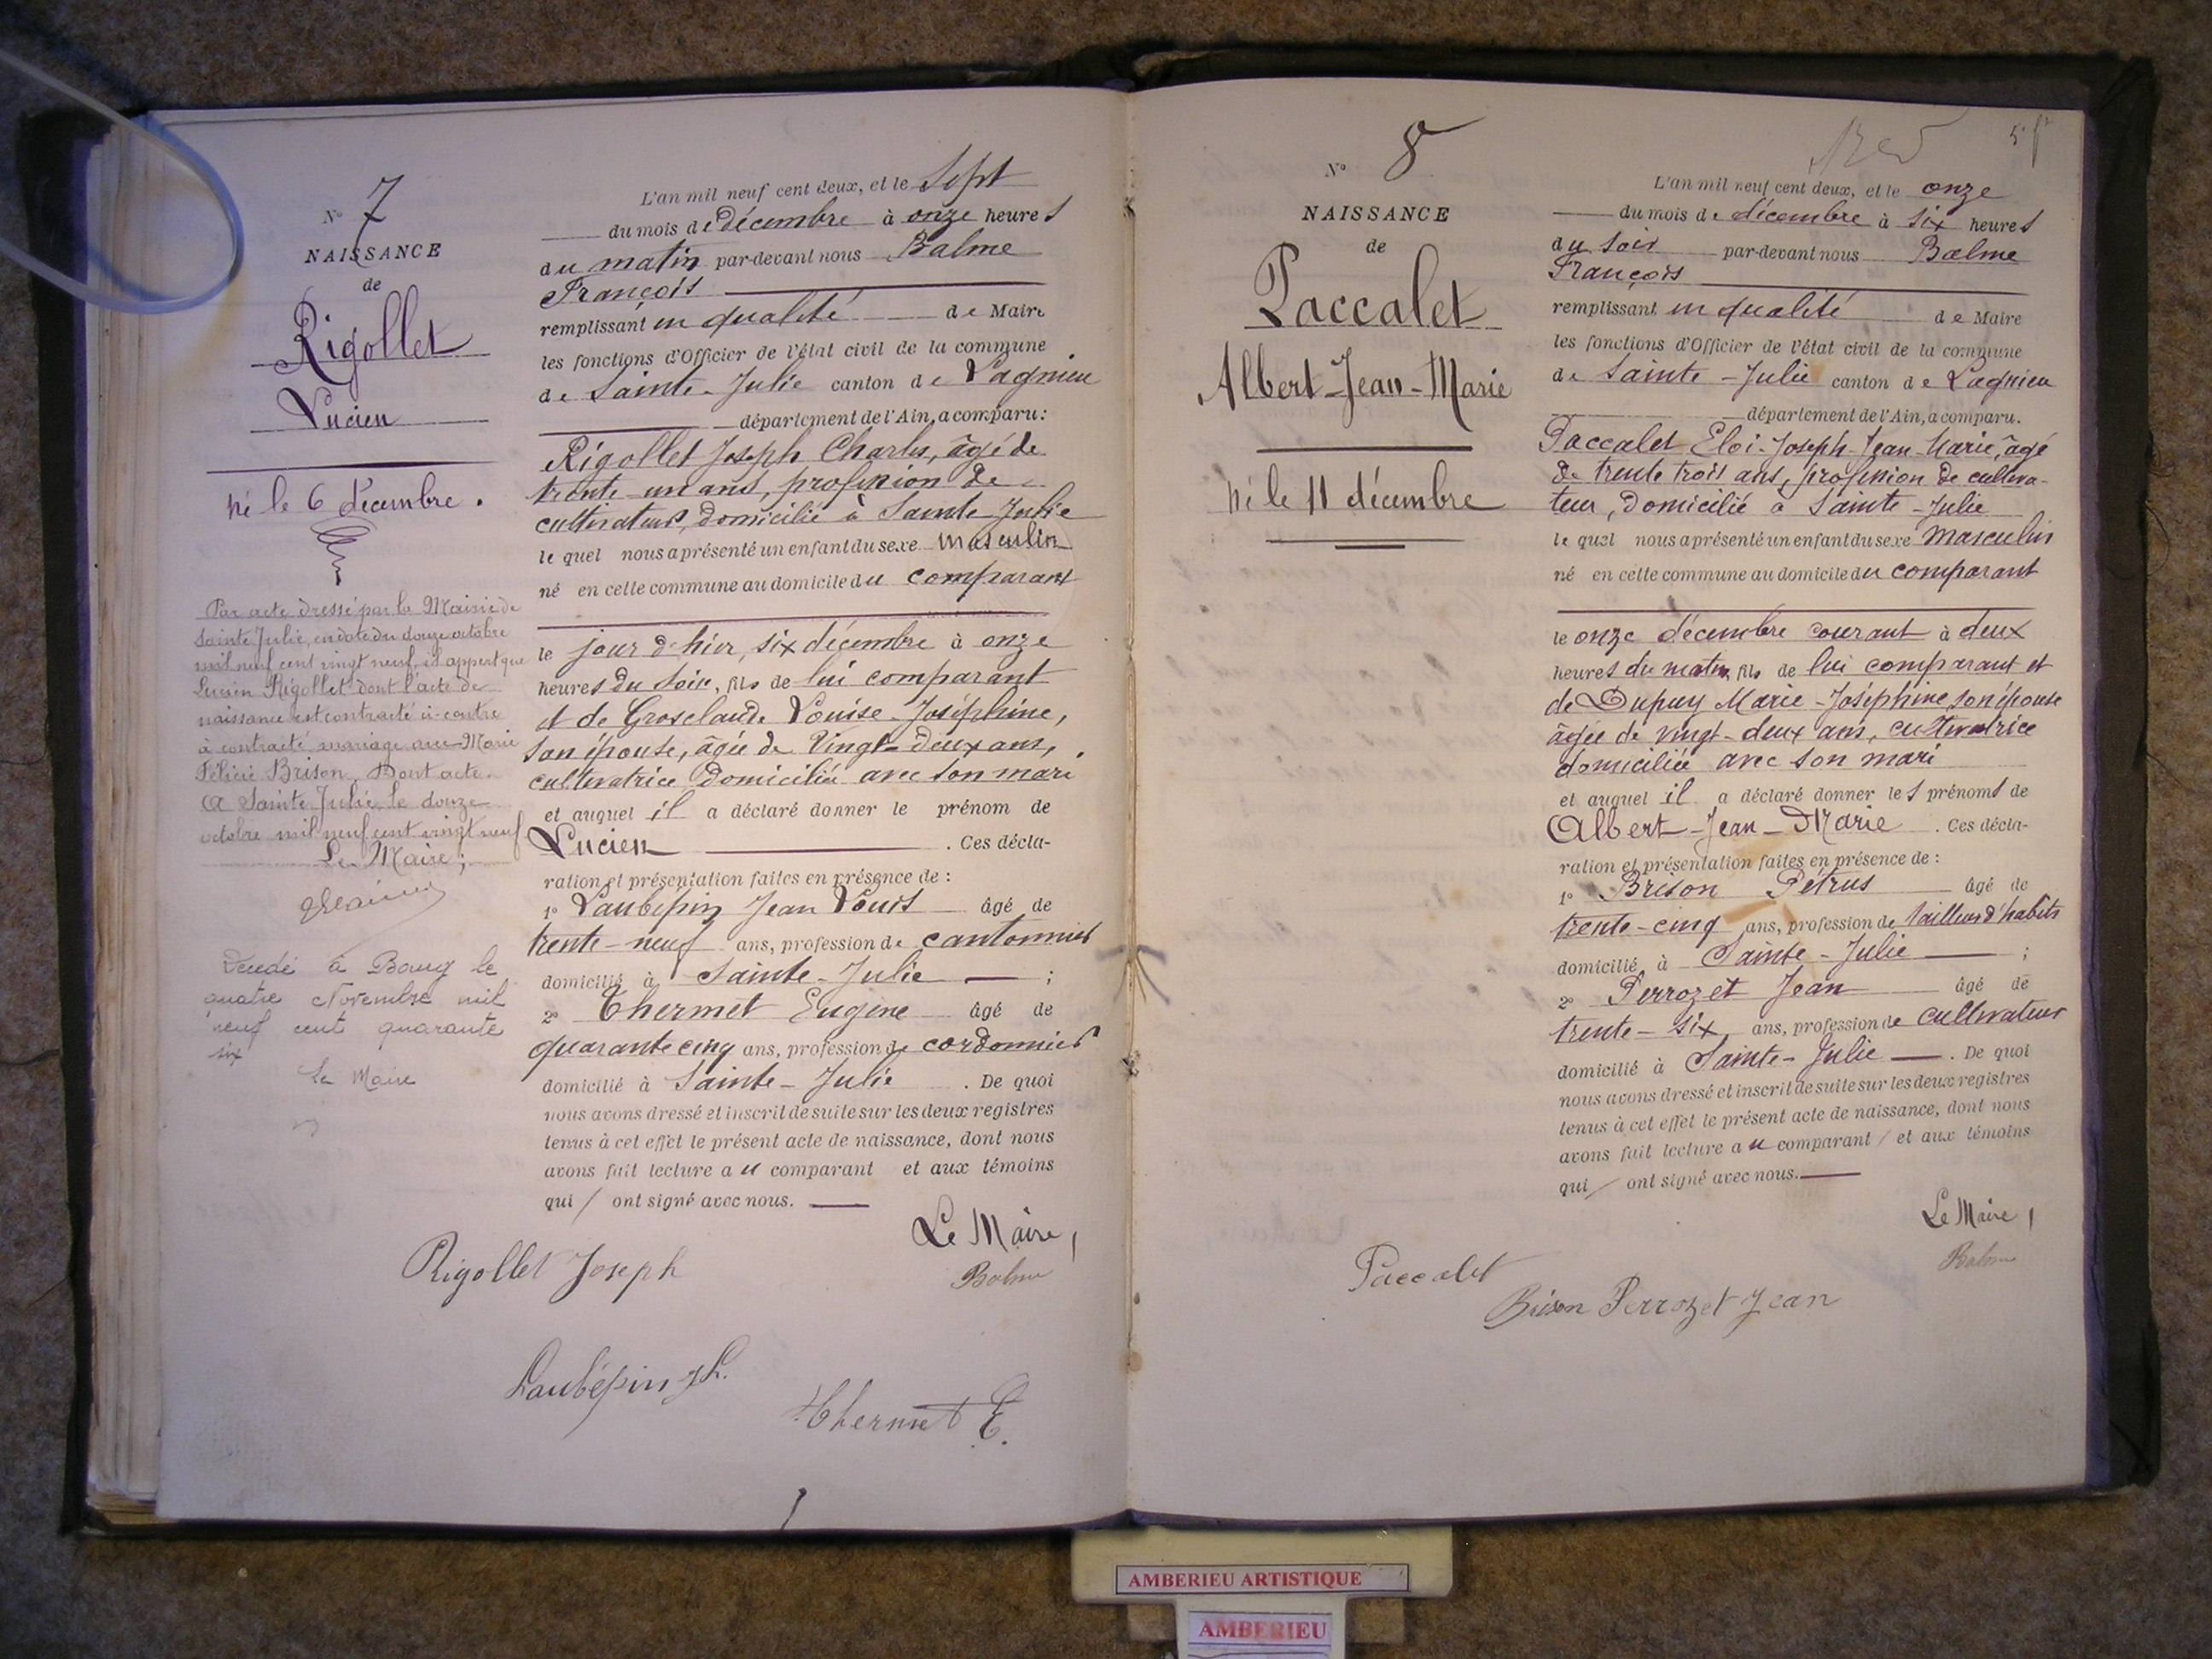 N° 7
NAISSANCE
de
Rigollet
Lucien
né le 6 décembre.
Par acte dressé par la Mairie de
Sainte Julie, en date du douze octobre
mil neuf cent vingt neuf, il appert que
Lucien Rigollet dont l'acte de
naissance est contracté ci-contre
à contracté mariage avec Marie
Félicie Brison. Dont acte.
A Sainte Julie le douze
octobre mil neuf cent vingt neuf
Le Maire;
Décédé à Bourg le
quatre Novembre mil
neuf cent quarante
six
Le Maire
L'an mil neuf cent deux, et le Sept
du mois de décembre à onze heures
du matin par-devant nous Balme
François
remplissant en qualité de Maire
les fonctions d'Officier de l'état civil de la commune
de Sainte-Julie canton de Lagnieu
département de l'Ain, a comparu:
Rigollet Joseph Charles, âgé de
trente-un ans, profession de
cultivateur, domicilié à Sainte-Julie
le quel nous a présenté un enfant du sexe masculin
né en cette commune au domicile du comparant
le jour d'hier, six décembre à onze
heures du soir, fils de lui comparant
et de Groselaude Louise-Joséphine,
son épouse, âgée de Vingt-deux ans,
cultivatrice domiciliée avec son mari
et auquel il a déclaré donner le prénom de
Lucien . Ces décla-
ration et présentation faites en présence de :
1° Laubépin Jean Louis âgé de
trente-neuf ans, profession de cantonnier
domicilié à Sainte-Julie ;
2° Thermet Eugène âgé de
quarante cinq ans, profession de cordonnier
domicilié à Sainte-Julie . De quoi
nous avons dressé et inscrit de suite sur les deux registres
tenus à cet effet le présent acte de naissance, dont nous
avons fait lecture au comparant et aux témoins
qui / ont signé avec nous.
Le Maire,
Rigollet Joseph
Balme
Laubépin J L.
Thermet E.
5
N° 8
NAISSANCE
de
Paccalet
Albert-Jean-Marie
né le 11 décembre
L'an mil neuf cent deux, et le onze
du mois de décembre à six heures
du soir par-devant nous Balme
François
remplissant en qualité de Maire
les fonctions d'Officier de l'état civil de la commune
de Sainte-Julie canton de Lagnieu
département de l'Ain, a comparu.
Paccalet Eloi-Joseph-Jean-Marie, âgé
de trente trois ans, profession de cultiva-
teur, domicilié à Sainte-Julie
le quel nous a présenté un enfant du sexe Masculin
né en cette commune au domicile du comparant
le onze décembre courant à deux
heures du matin, fils de lui comparant et
de Dupuy Marie-Joséphine, son épouse
âgée de vingt-deux ans, cultivatrice
domiciliée avec son mari
et auquel il a déclaré donner les prénoms de
Albert-Jean-Marie . Ces décla-
ration et présentation faites en présence de :
1° Brison Pétrus âgé de
trente-cinq ans, profession de tailleur d'habits
domicilié à Sainte-Julie ;
2° Perrozet Jean âgé de
trente-six ans, profession de cultivateur
domicilié à Sainte-Julie . De quoi
nous avons dressé et inscrit de suite sur les deux registres
tenus à cet effet le présent acte de naissance, dont nous
avons fait lecture au comparant / et aux témoins
qui / ont signé avec nous.
Le Maire,
Balme
Paccalet
Brison Perrozet Jean
AMBERIEU ARTISTIQUE
AMBERIEU